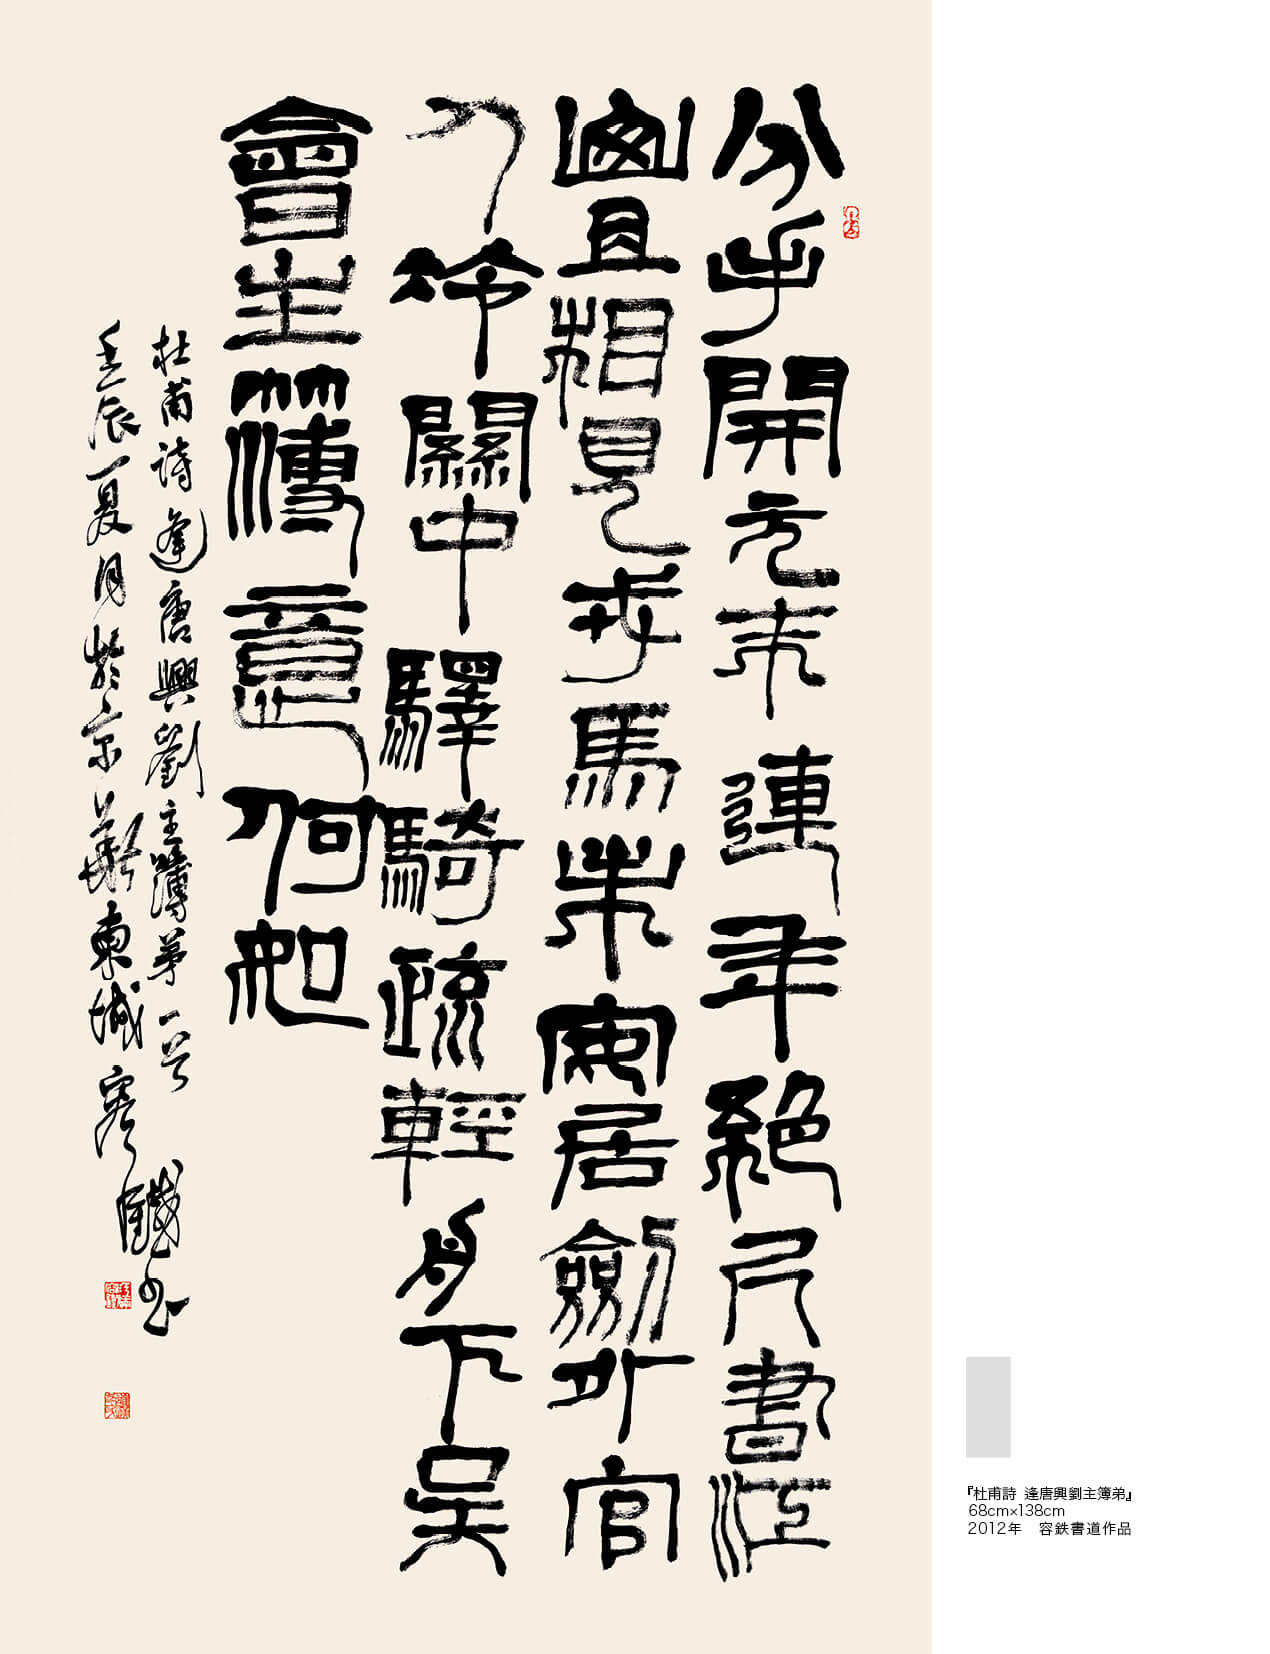 分手開元末連年絕尺書江
山且相見戎馬未安居劍外官
人冷關中驛騎疏輕舟下吳
會主簿意何如
杜甫詩逢唐興劉主簿弟一首
壬辰夏月於京華東城容鐵書
『杜甫詩 逢唐興劉主簿弟』
68cm×138cm
2012年 容鉄書道作品